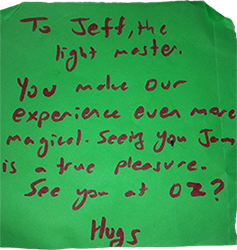 To Jeff, the
light master.
You make our
experience even more
magical. Seeing you Jam
is a true pleasure.
See you at OZ?
Hugs